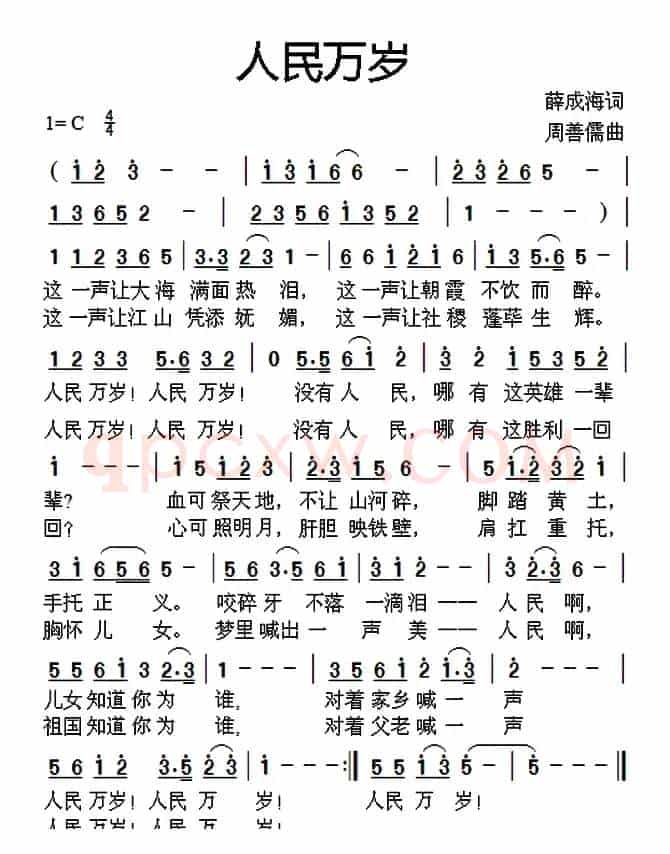 人民万岁
薛成海词
1=C 4/4
周善儒曲
( 1 2 3 - - | 1 3 1 6 6 - - | 2 3 2 6 5 - - |
1 3 6 5 2 - | 2 3 5 6 1 3 5 2 | 1 - - - ) |
1 1 2 3 6 5 | 3.3 2 3 1 - | 6 6 1 2 1 6 | 1 3 5.6 5 - |
这一声让大海 满面热 泪， 这一声让朝霞 不饮而 醉。
这一声让江山 凭添妩 媚， 这一声让社稷 蓬荜生 辉。
1 2 3 3 5.6 3 2 | 0 5.5 6 1 2 | 3 2 1 5 3 5 5 |
人民万岁！人民 万岁！ 没有人 民，哪 有 这英雄一辈
人民万岁！人民 万岁！ 没有人 民，哪 有 这胜利一回
qpcxw.com
1 - - - | 1 5 1 2 3 | 2.3 1 6 5 - | 5 1.2 3 2 |
辈？ 血可祭天地，不让 山河碎， 脚踏 黄 土，
回？ 心可照明月，肝胆 映铁壁， 肩扛 重 托，
3 1 6 5 6 5 - | 5 6 3 3. 5 | 6 5 1 2 - - | 3 2.3 |
手托 正 义。 咬碎 牙 不落 一滴泪 —— 人民 啊，
胸怀 儿 女。 梦里喊出一 声 美 —— 人民 啊，
5 5 6 1 3 2.3 | 1 - - - | 3 5 6 1 2 1.3 | 2 - - |
儿女知道你为 谁， 对着家乡喊一 声
祖国知道你为 谁， 对着父老喊一 声
5 6 1 2 3.5 2 3 | 1 - - - :‖ 5 5 1 2 5 - | 5 - - - ‖
人民 万岁！人民 万 岁！ 人民 万 岁！
人民 万岁！人民 万 岁！